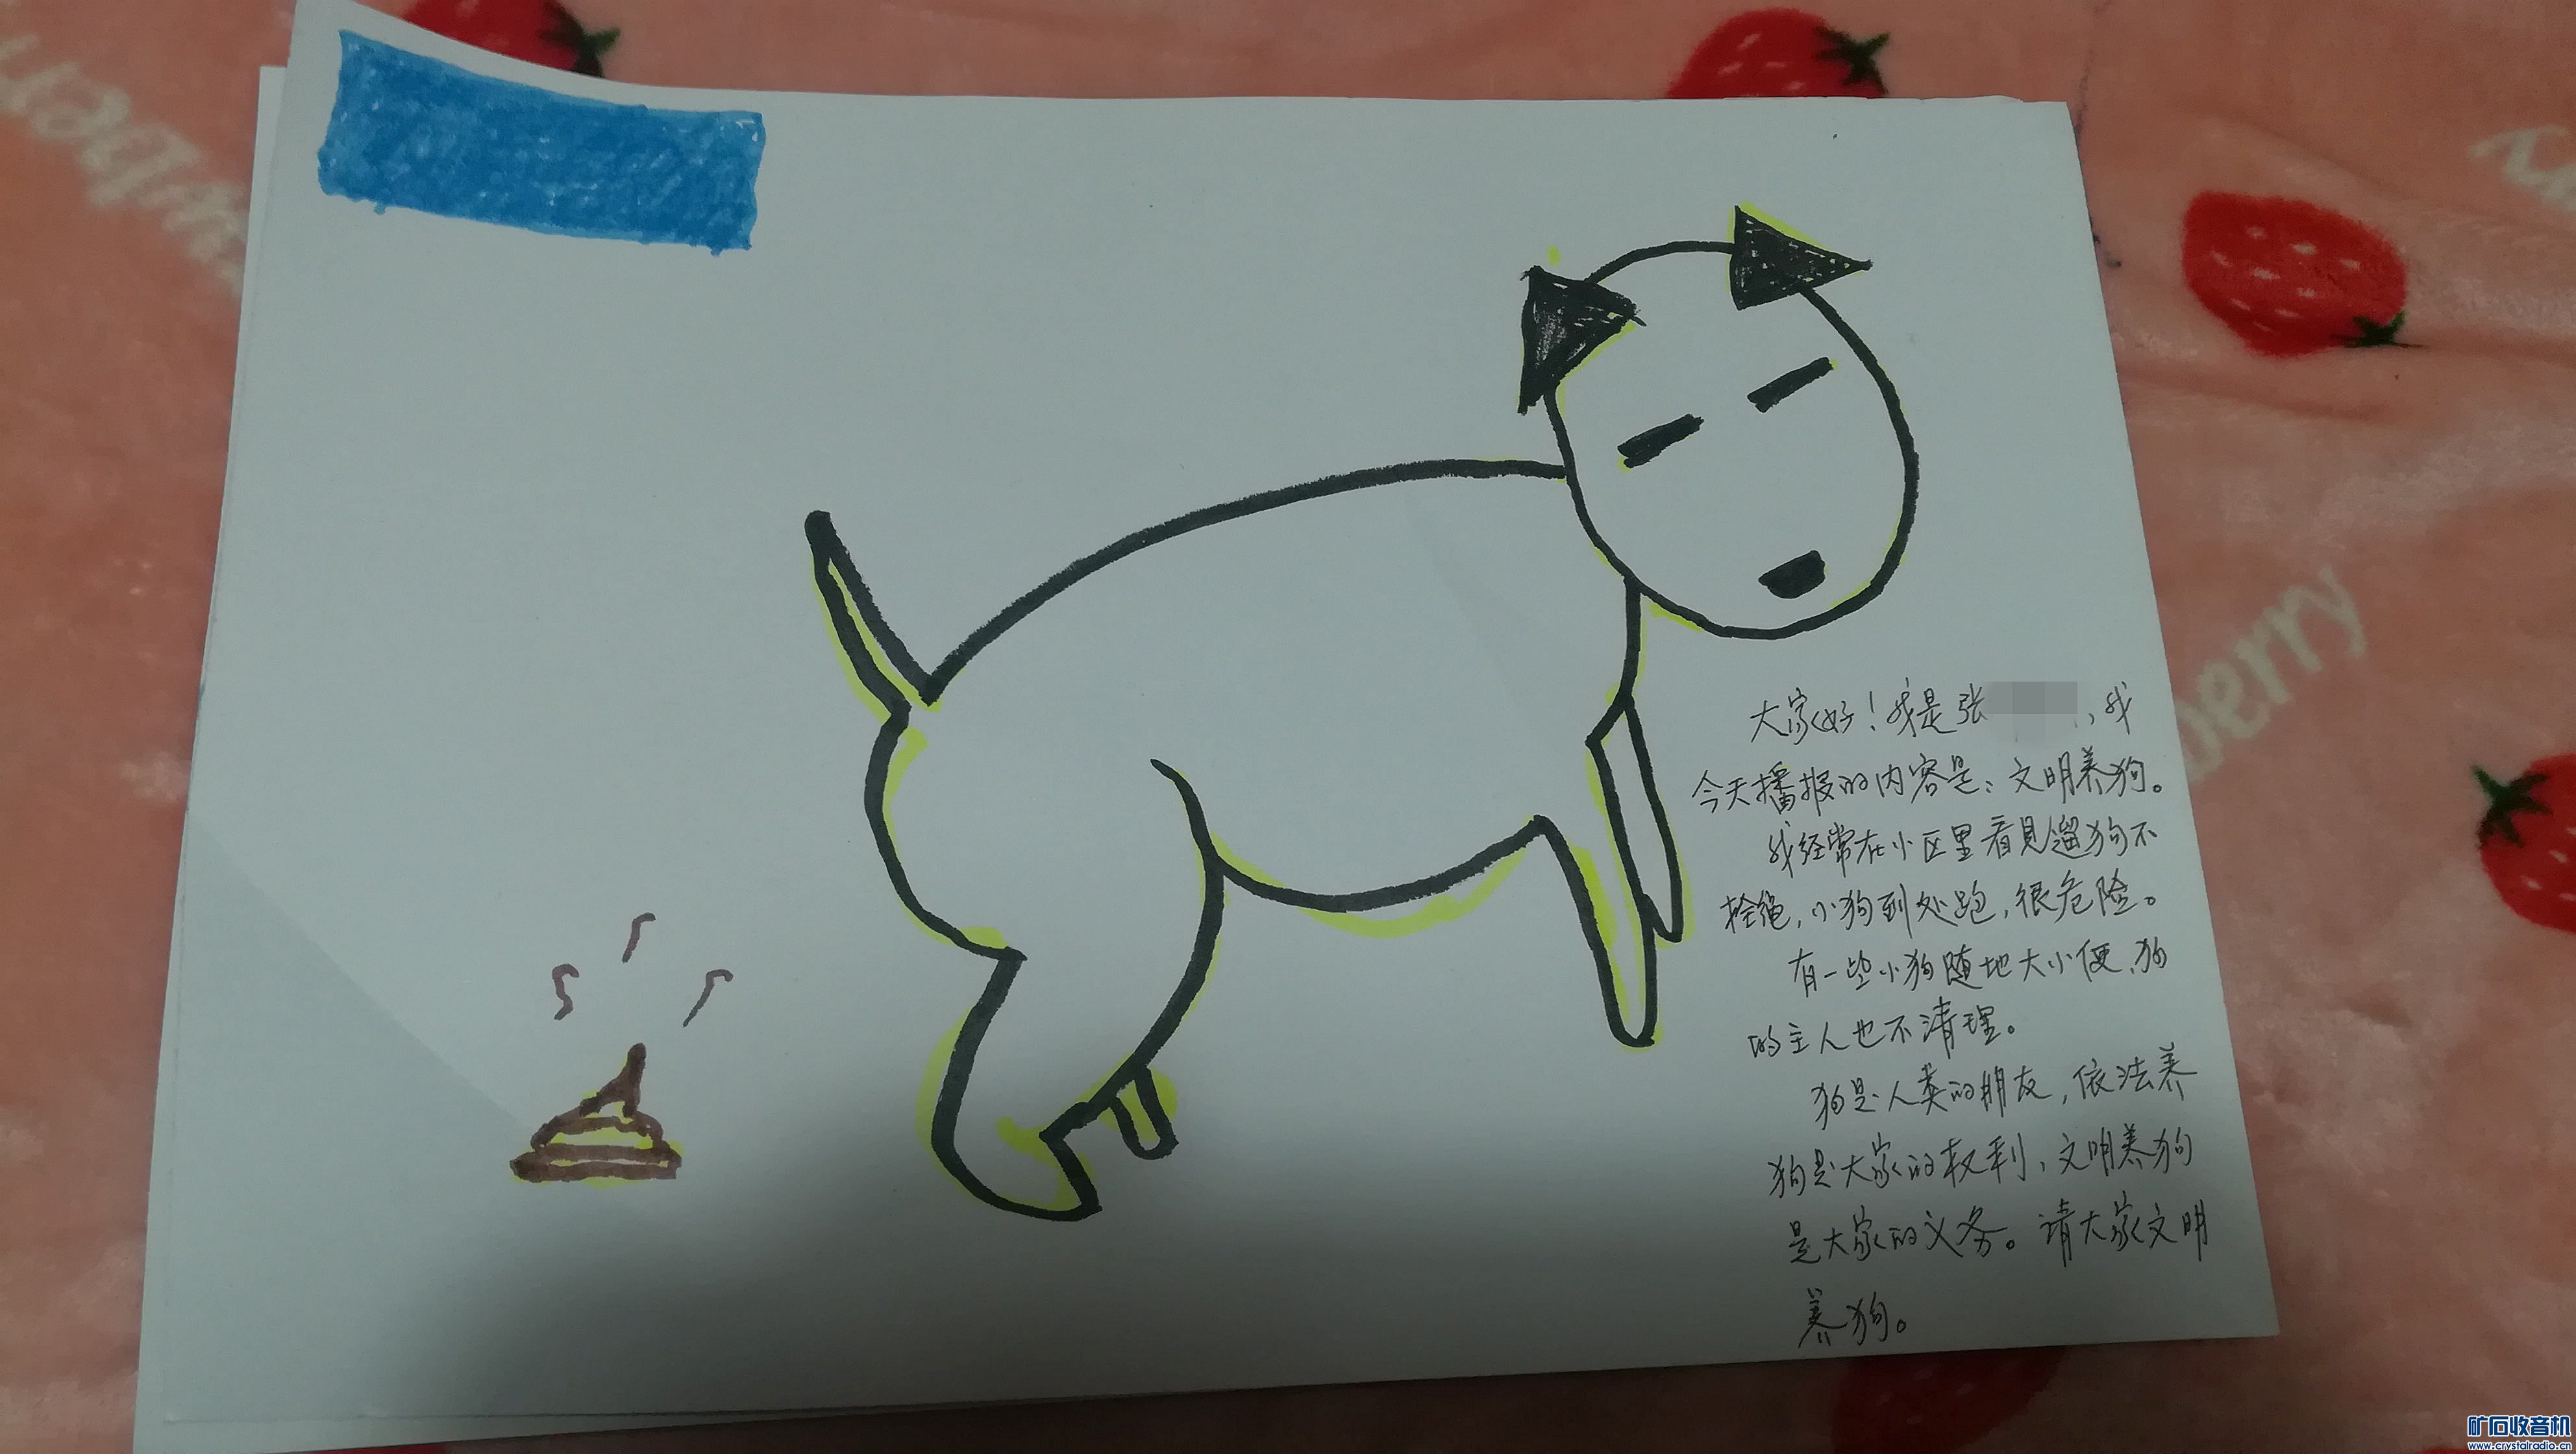 大家好！我是张　　，我
今天播报的内容是：文明养狗。
我经常在小区里看见遛狗不
拴绳，小狗到处跑，很危险。
有一些小狗随地大小便，狗
的主人也不清理。
狗是人类的朋友，依法养
狗是大家的权利，文明养狗
是大家的义务。请大家文明
养狗。
berry
矿石收音机
www.crystalradio.cn